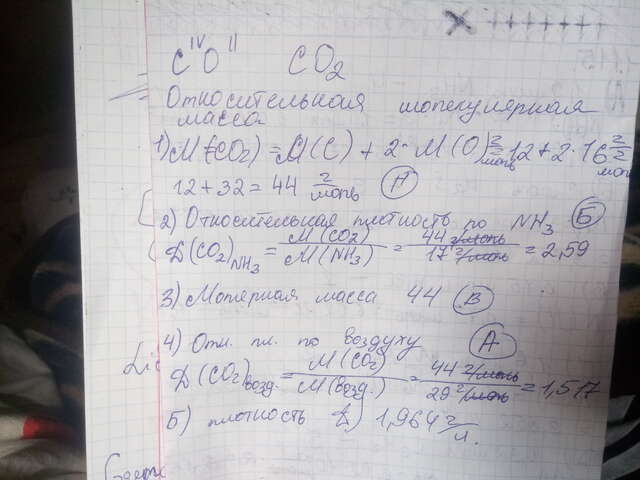 IV II
CO CO₂
Относительная молекулярная
масса
1) M(CO₂) = M(C) + 2·M(O) г/моль = 12 + 2·16 г/моль
12 + 32 = 44 г/моль
2) Относительная плотность по NH₃ Б
Д(CO₂)NH₃ = M(CO₂)/M(NH₃) = 44 г/моль / 17 г/моль = 2,59
3) Молярная масса 44 В
4) Отн. пл. по воздуху А
Д(CO₂)возд. = M(CO₂)/M(возд.) = 44 г/моль / 29 г/моль = 1,517
Б) плотность Д) 1,964 г/л.